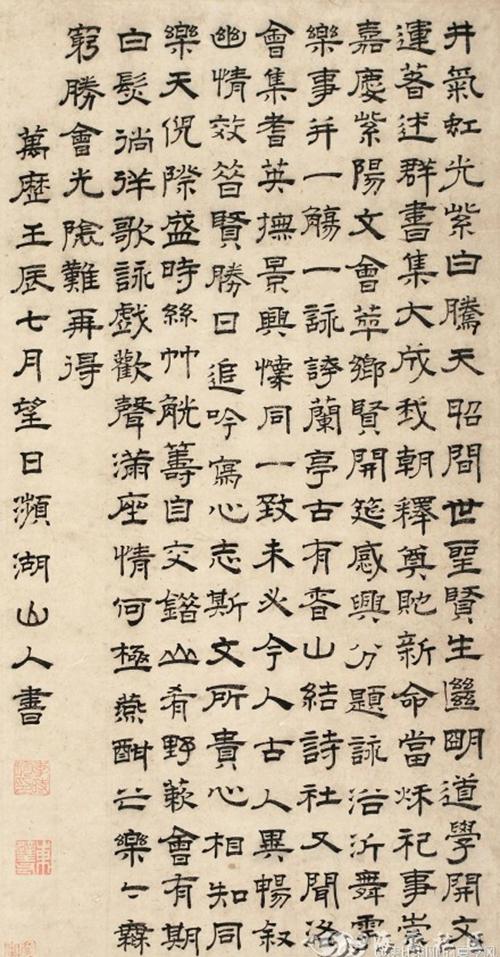 井氣虹光紫白騰天昭間世聖賢生繼明道學開文
運著述群書集大成我朝釋奠貤新命當秌祀事崇
嘉慶紫陽文會萃鄉賢開筵感興分題詠浴沂舞雩
樂事并一觴一詠誇蘭亭古有香山結詩社又聞洛
會集耆英撫景興懷同一致未必今人古人異暢敘
幽情效昝賢勝日追吟寫心志斯文所貴心相知同
樂天倪際盛時絲竹觥籌自交錯山肴野蔌會有期
白髮徜徉歌詠戲歡聲滿座情何極燕酣之樂樂無
窮勝會光陰難再得
萬歷壬辰七月望日瀕湖山人書